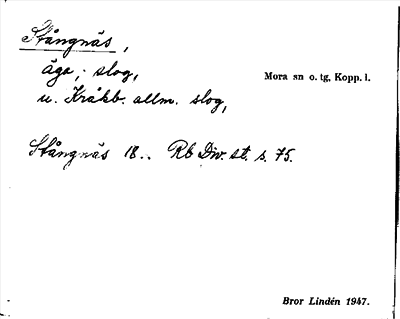 Stångnäs,
äga; slog, Mora sn o. tg, Kopp. l.
u. Kråkb. allm. slog,
Stångnäs 18.. Rb Div. st. s. 75.
Bror Lindén 1947.